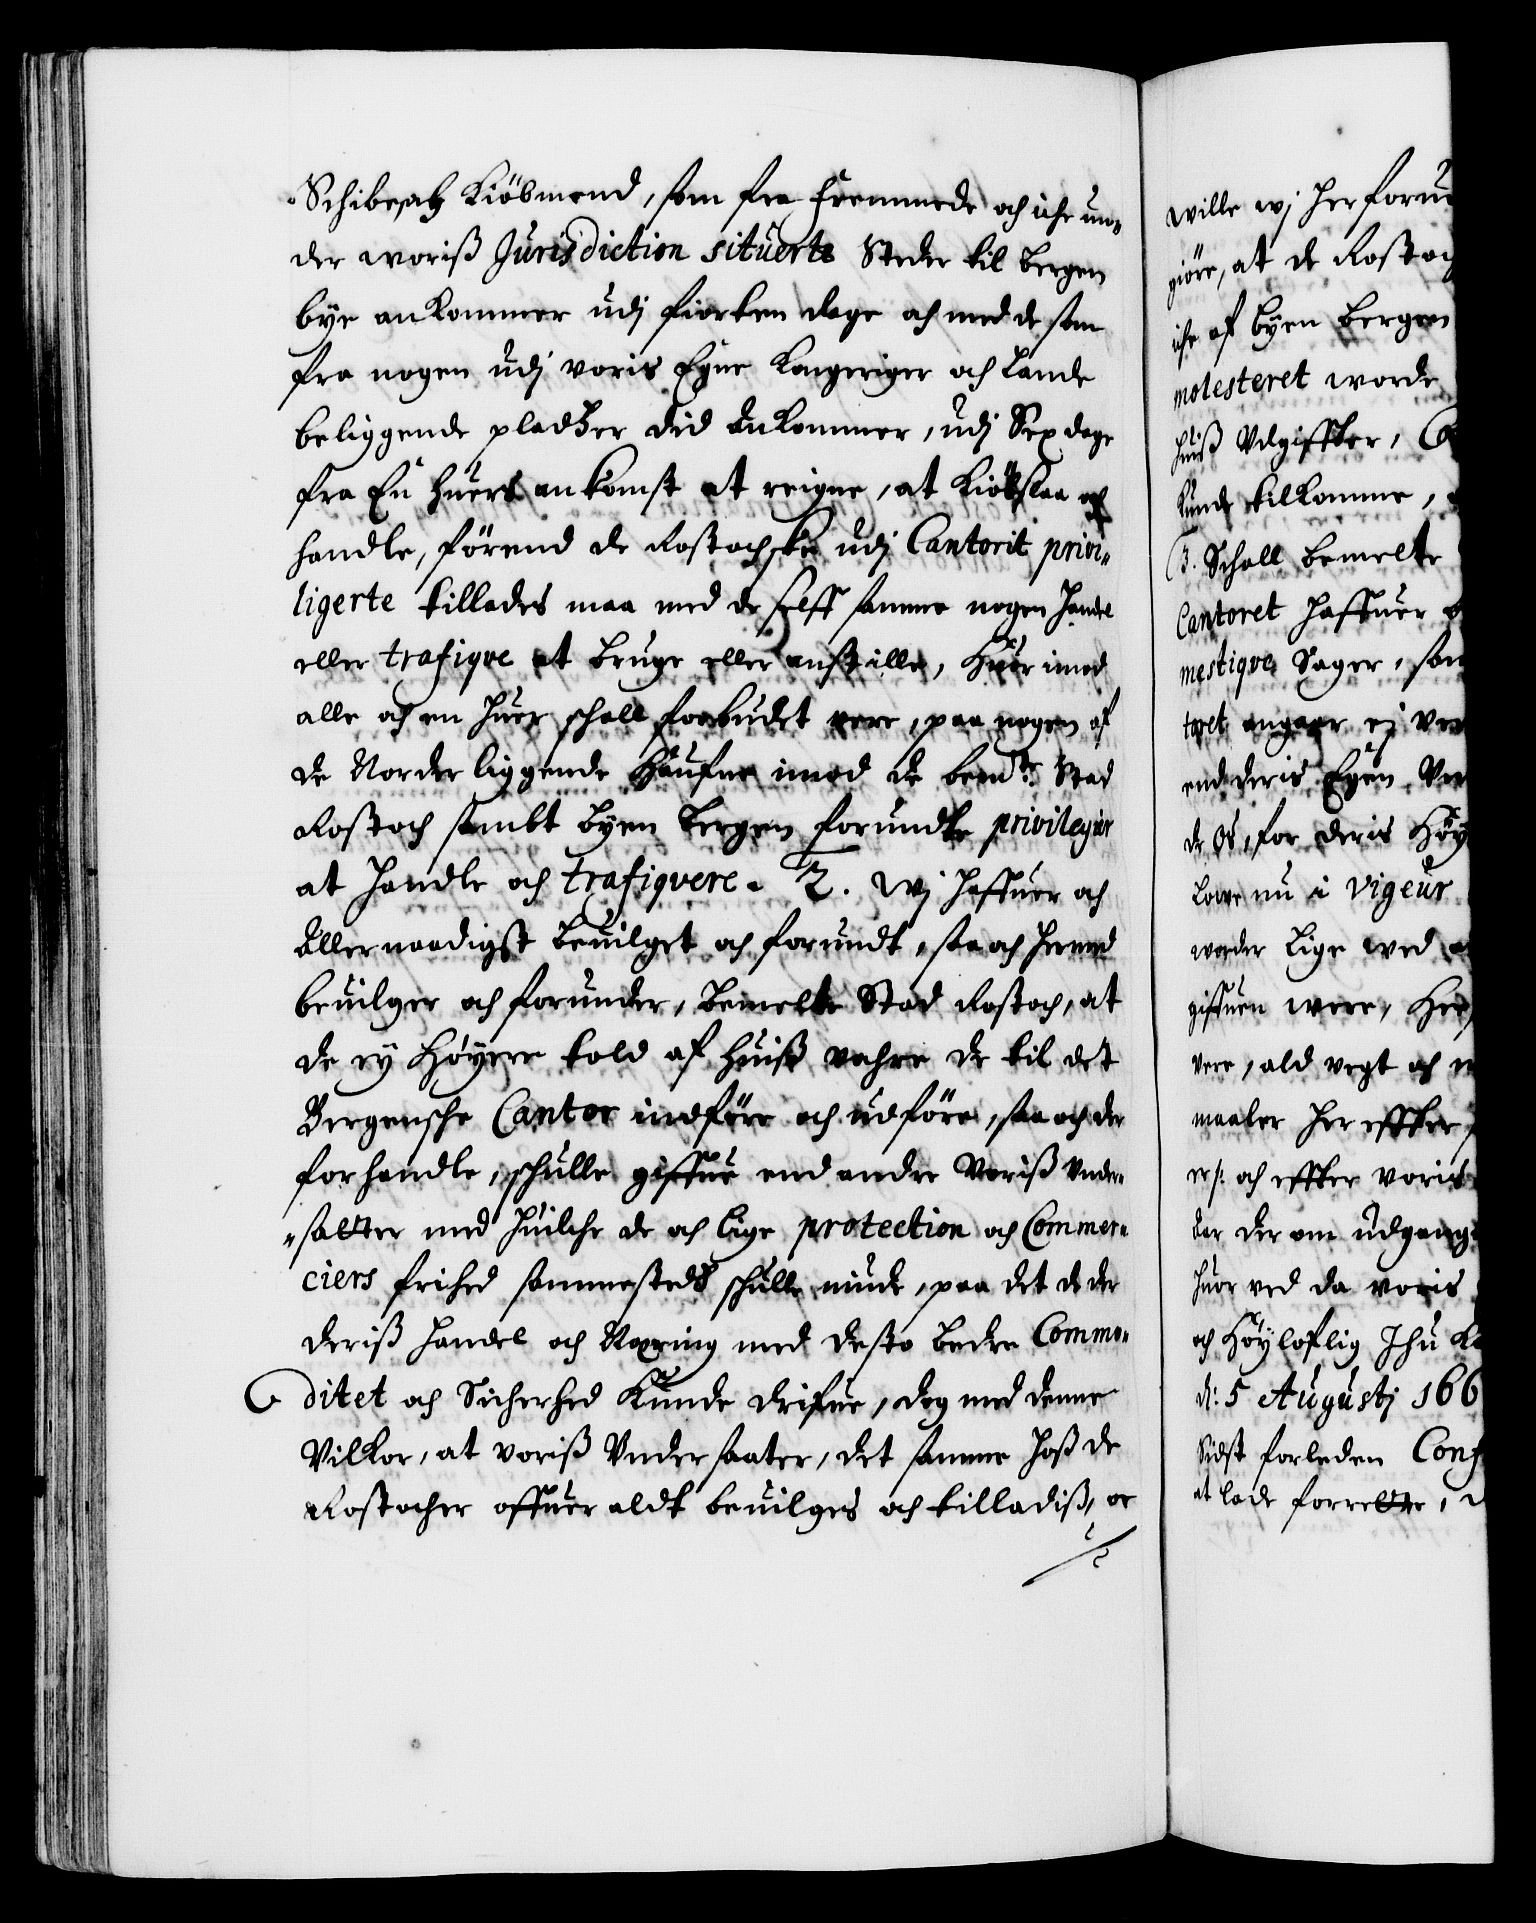 Schibe, och Kiöbmend, som fra fremmede och iche un„
der woriß Jurisdiction situerte Steder til Bergen
bye ankommer udj fiorten dage och med de som
fra nogen udj voris Egne Kongeriger och Lande
beliggende pladtzer did ankommer, udj Sex dage
fra En huers ankomst at reigne, at Kiöbslaa och
handle, förend de Rostochske udj Cantorit privi„
ligerte tillades maa med de selff samme nogen handel
eller trafiqve at bruge eller anstille, Huor imod
alle och en huer schall forbudet vere, paa nogen af
de Norder liggende Haufne imod de bemte Stad
Rostoch sambt byen Bergen forundte privilegier
at handle och trafiqvere. 2. Wj haffuer och
Allernaadigst beuilget och forundt, saa och hermed
beuilger och forunder, bemelte Stad Rostoch, at
de ey höyere told af huiß wahre de til det
Bergensche Cantor indföre och udföre, saa och der
forhandle, schulle giffue end andre Voriß Under„
„satter med huilche de och lige protection och Commer„
ciers frihed sammesteds schulle niude, paa det de der
deriß handel och Næring med desto bedre Commo„
ditet och Sicherhed Kunde drifue, dog med denne
Vilkor, at voriß Undersaater, det samme hoß de
Rostocher offuer aldt beuilges och tilladiß, oc
wille wj her foru
giöre, at de Rostoch
iche af byen Bergen
molesteret worde
huiß Udgiffter, C
Kunde tilkomme,
3. Schall bemelte
Cantoret haffuer
mestiqve Sager, som
toret angaar ej
end deris Egen
de Os, for deris Höy
Lowe nu i vigeur
worder lige wed
giffuen were, Her
vere, ald vegt och
maaler her effter
och effter voris
der om udgang
huor ved da voris
och Höyloflig Ihu
d: 5 Augustj 166
Sidst forleden Conf
at lade forrette,